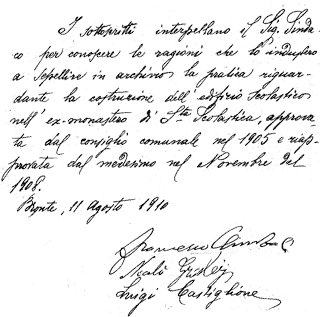 I sottoscritti interpellano il Sig. Sinda
co per conoscere le ragioni che lo indussero
a seppellire in archivio la pratica riguar
dante la costruzione dell'edificio Scolastico
nell'ex-monastero di S.ta Scolastica, approva
ta dal consiglio comunale nel 1905 e riap
provata dal medesimo nel Novembre del
1908.
Bronte, 11 Agosto 1910
Francesco
Luigi Castiglione